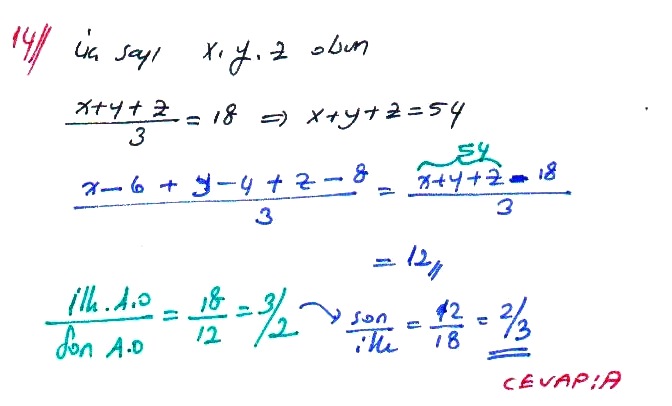 14// üç sayı x, y, z olsun
x+y+z / 3 = 18 ⇒ x+y+z=54
x-6+y-4+z-8 / 3 = x+y+z-18 / 3
54
= 12//
ilk. A.O / Son A.O = 18/12 = 3/2 → son/ilk = 12/18 = 2/3
CEVAP:A